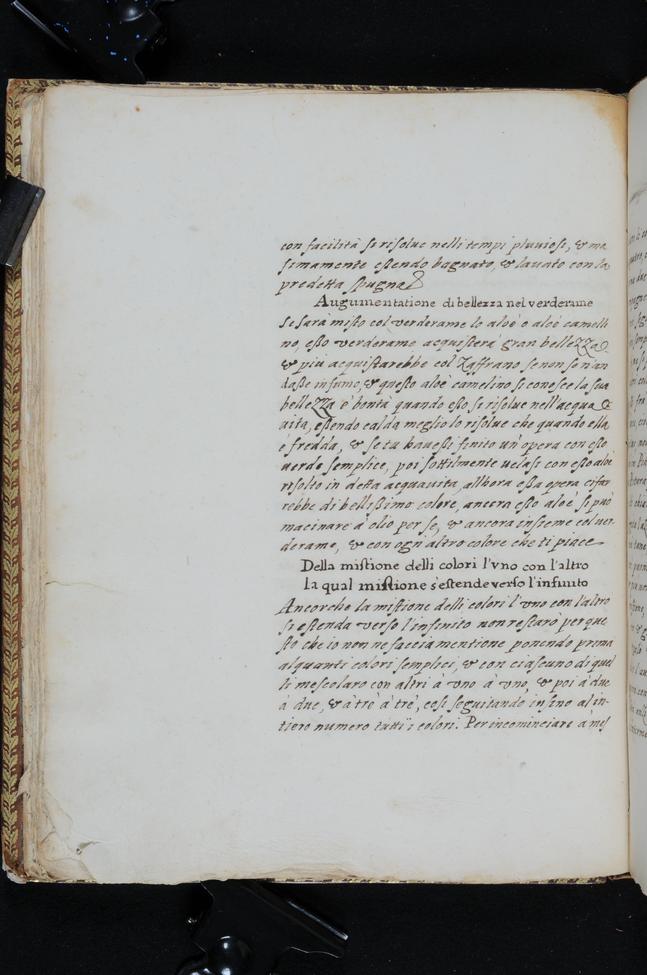 con facilità si risolue nelli tempi pluuiosi, & ma
simamente essendo bagnato, & lauato con la
predetta spugna
Augumentatione di bellezza nel verderame
Se sarà misto col verderame lo aloè o aloè camelli
no, esso verderame acquisterè gran bellezza
& più acquistarebbe col Zaffrano se non se n'an
dasse in fumo, & questo aloè camelino si conosce la sua
bellezza e bontà quando esso se risolue nell'acqua
uita, essendo calda meglio lo risolue che quando ella
è fredda, & se tu hauessi finito un'opera con esso
uerde semplice, poi sottilmente uelasi con esso aloè
risolto in detta acquauita, allhora essa opera si far
rebbe di bellissimo colore, ancora esso aloè si può
macinare à olio per se, & ancora insieme col uer
derame, & con ogn'altro colore che ti piace
Della mistione delli colori l'vno con l'altro
la qual mistione s'estende verso l'infinito
Ancorche la mistione delli colori l'vno con l'altro
si estenda verso l'infinito non restarò per que
sto che io non ne faccia mentione ponendo prima
alquanti colori semplici, & con ciascuno di quel
li mescolaro con altri à vno à vno, & poi à due
à due, & à trè à trè, cosi seguitando insino al in
tiero numero tutti i colori. Per incominciare à mes